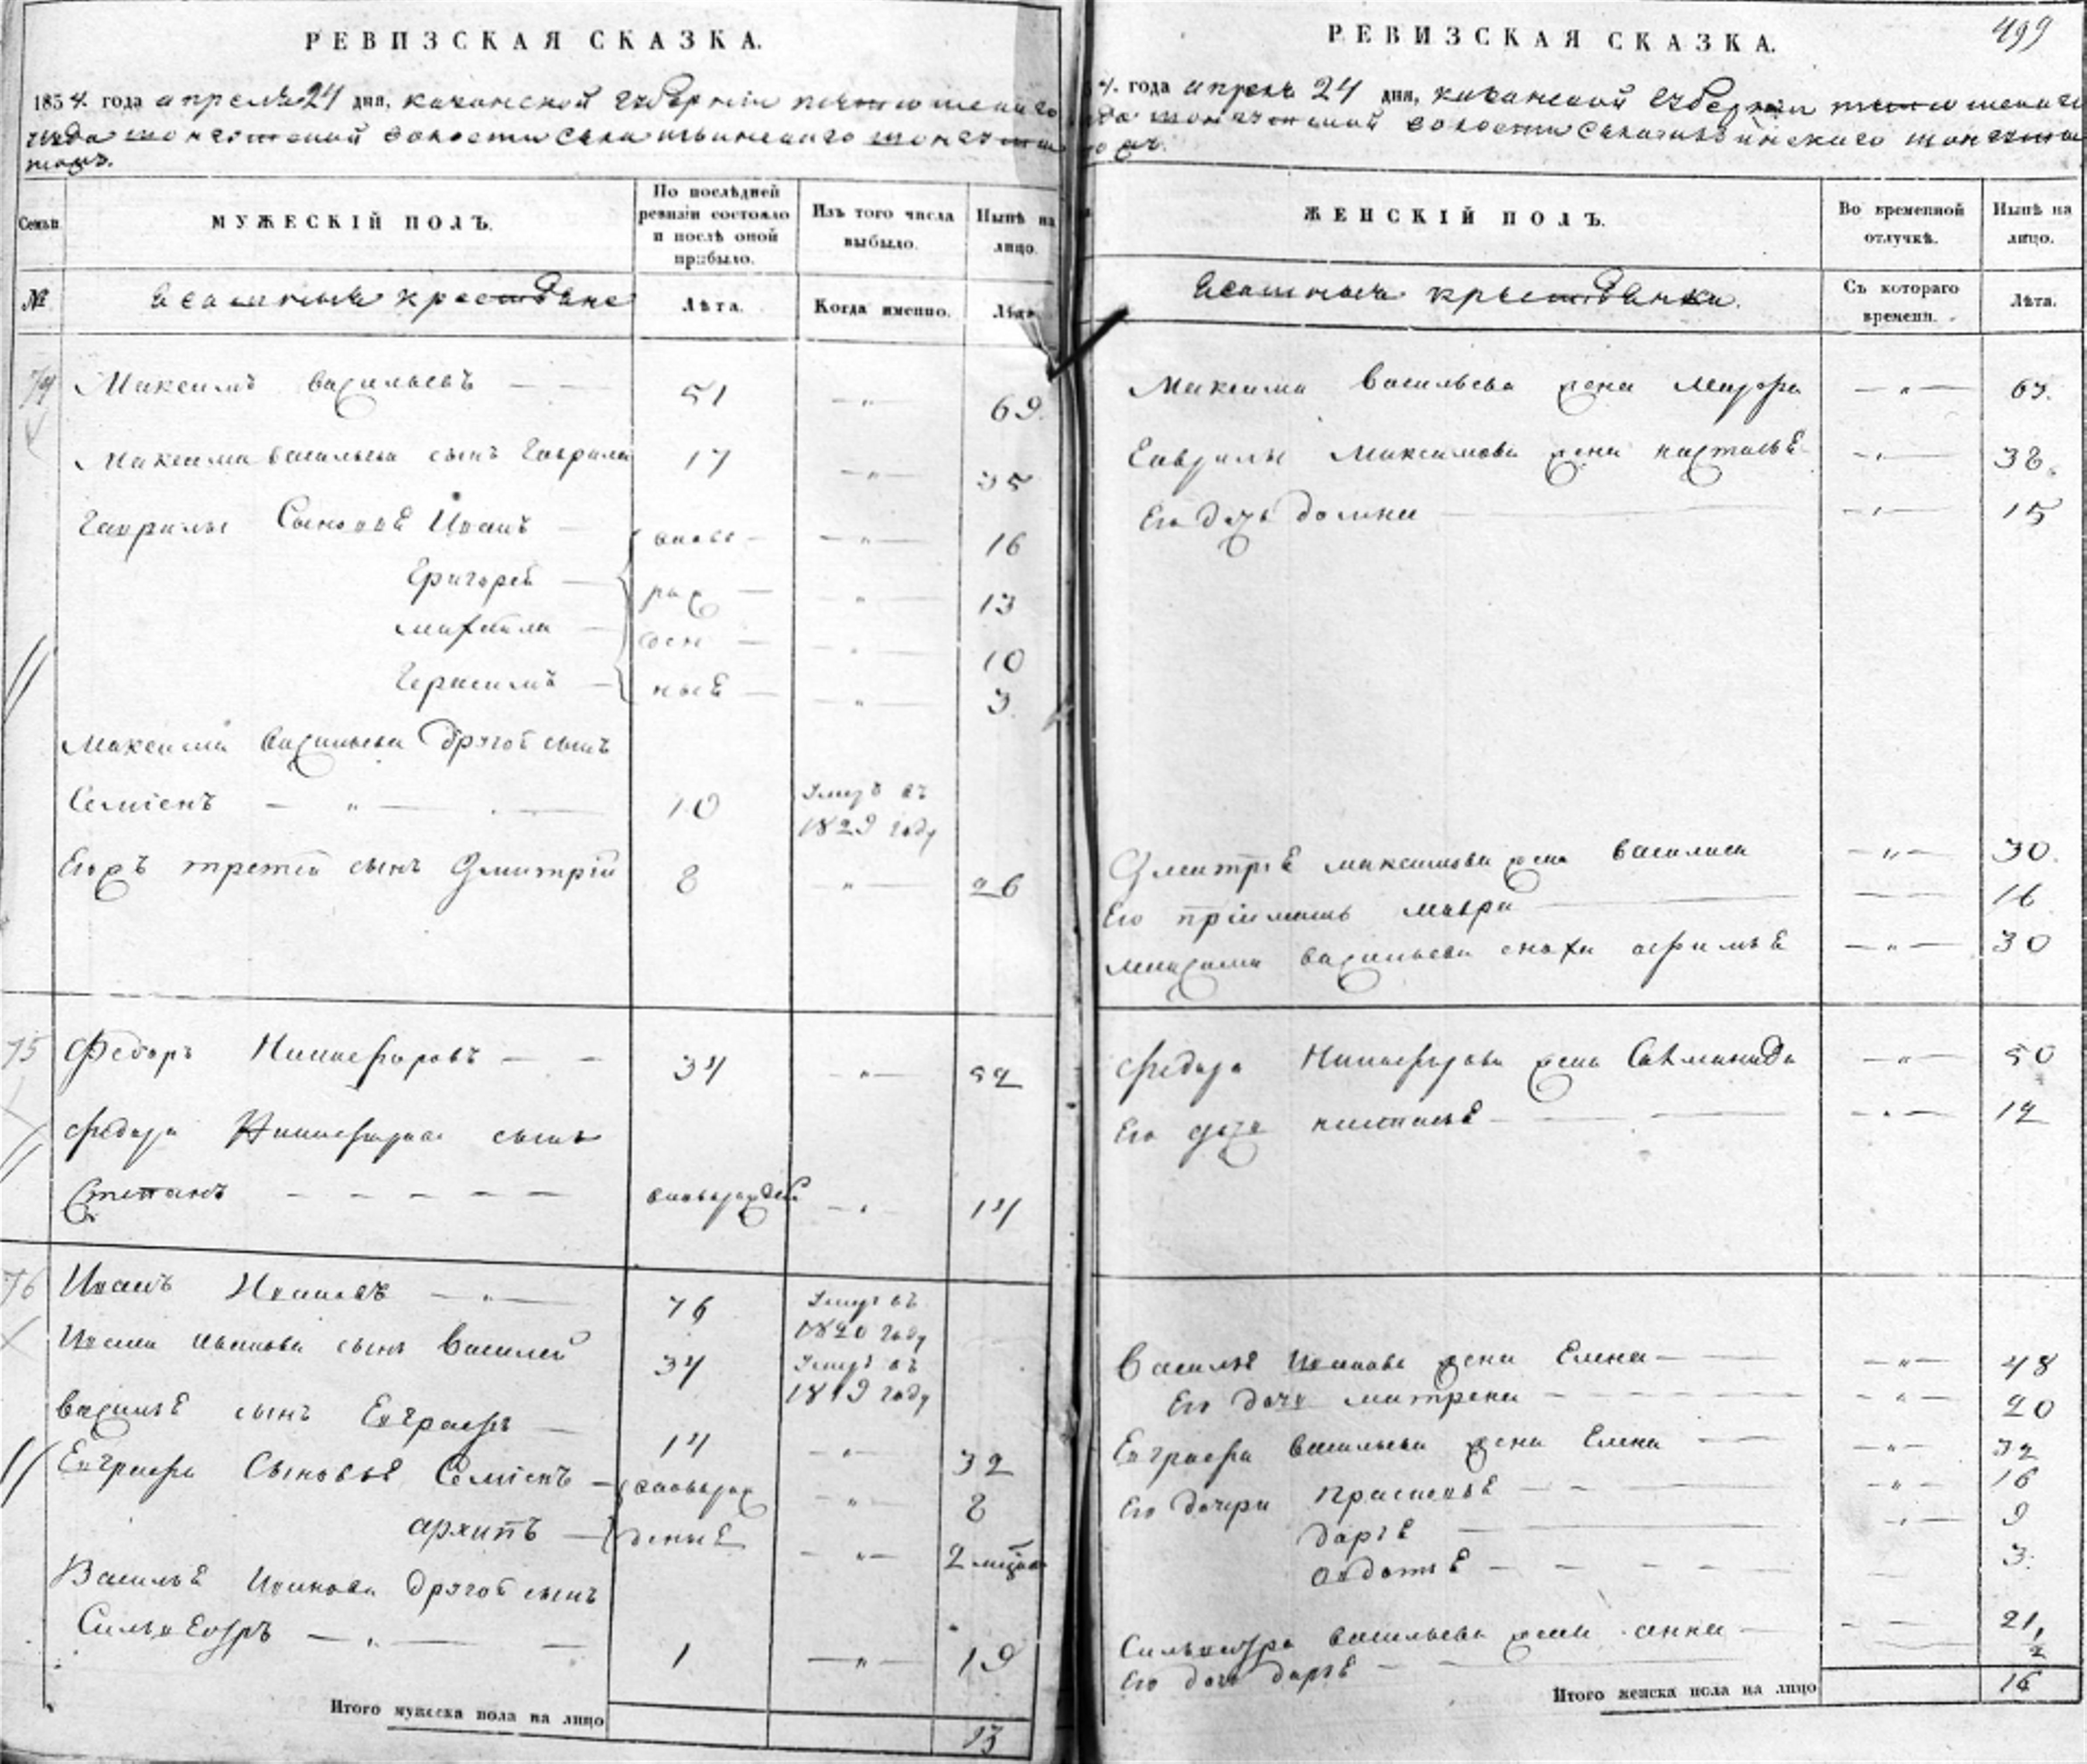 РЕВИЗСКАЯ СКАЗКА.
1834. года апреля 24 дня, казанской губернии
волости села
Семьи
МУЖЕСКІЙ ПОЛЪ.
По послѣдней ревизіи состояло и послѣ оной прибыло.
Изъ того числа выбыло.
Нынѣ на лицо.
№
Ясашныя крестьяне
Лѣта.
Когда именно.
Лѣта
74 Максимъ Васильевъ 51 — „ — 69.
Максима Васильева сынъ Гаврила 17 — „ — 35
Гаврилы Сыновья Иванъ — вновь — „ — 16
Григорей — рож — „ — 13
Михайла — ден — „ — 10
Герасимъ — ныя — „ — 3
Максима Васильева другой сынъ
Семіенъ — „ — 10 Умеръ въ 1829 году
Егоръ третей сынъ Дмитрій 8 — „ — 26
75 Федоръ Никифоровъ — — 34 — „ — 52
Федора Никифорова сынъ
Степанъ — — — — — вновьрожден — „ — 14
76 Иванъ Ивановъ — „ — 76 Умеръ въ 1820 году
Ивана Иванова сынъ Василей 34 Умеръ въ 1819 году
Василья сынъ Евграфъ — 14 — „ — 32
Евграфа Сыновья Семіенъ — вновьрож — „ — 8
Архипъ — деныя — „ — 2 месяца
Василья Иванова другой сынъ
Сильвестръ — „ — — 1 — „ — 19
Итого мужеска пола на лицо 13
РЕВИЗСКАЯ СКАЗКА.
499
4. года апреля 24 дня, казанской губернии
волости села
ЖЕНСКІЙ ПОЛЪ.
Во временной отлучкѣ.
Нынѣ на лицо.
Ясашныя крестьянки.
Съ котораго времени.
Лѣта.
Максима Васильева жена — „ — 65.
Гаврилы Максимова жена Настасья — „ — 38.
Его дочь Домна — „ — 15
Дмитрія Максимова жена Василиса — „ — 30.
Его пріймышь Мавра — 16
Максима Васильева сноха Афимья — „ — 30
Федора Никифорова жена Саламанида — „ — 50
Его дочь Настасья — „ — 12
Василья Иванова жена Елена — „ — 48
Его дочь Матрена — „ — 20
Евграфа Васильева жена Елена — „ — 32
Его дочери Прасковья — „ — 16
Дарья — „ — 9
Авдотья — 3.
Сильвестра Васильева жена Анна — 21,
Его дочь Дарья — 2
Итого женска пола на лицо 16